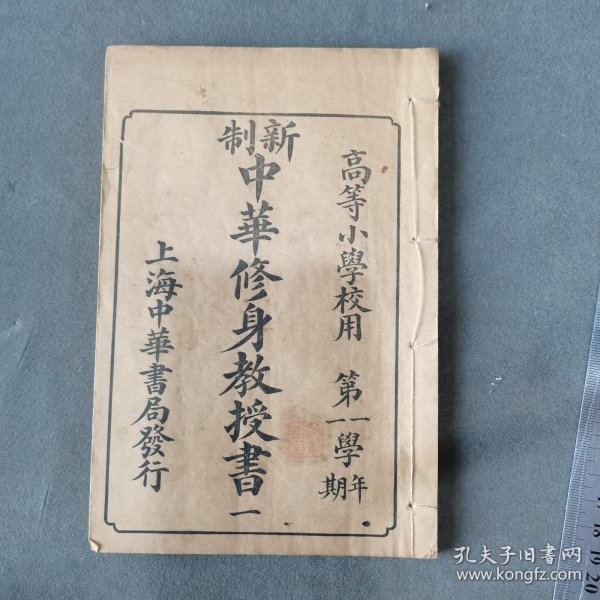 高等小學校用 第一一學年期
新制中華修身教授書一
上海中華書局發行
孔夫子旧书网
www.kongfz.com
17 18 19 20